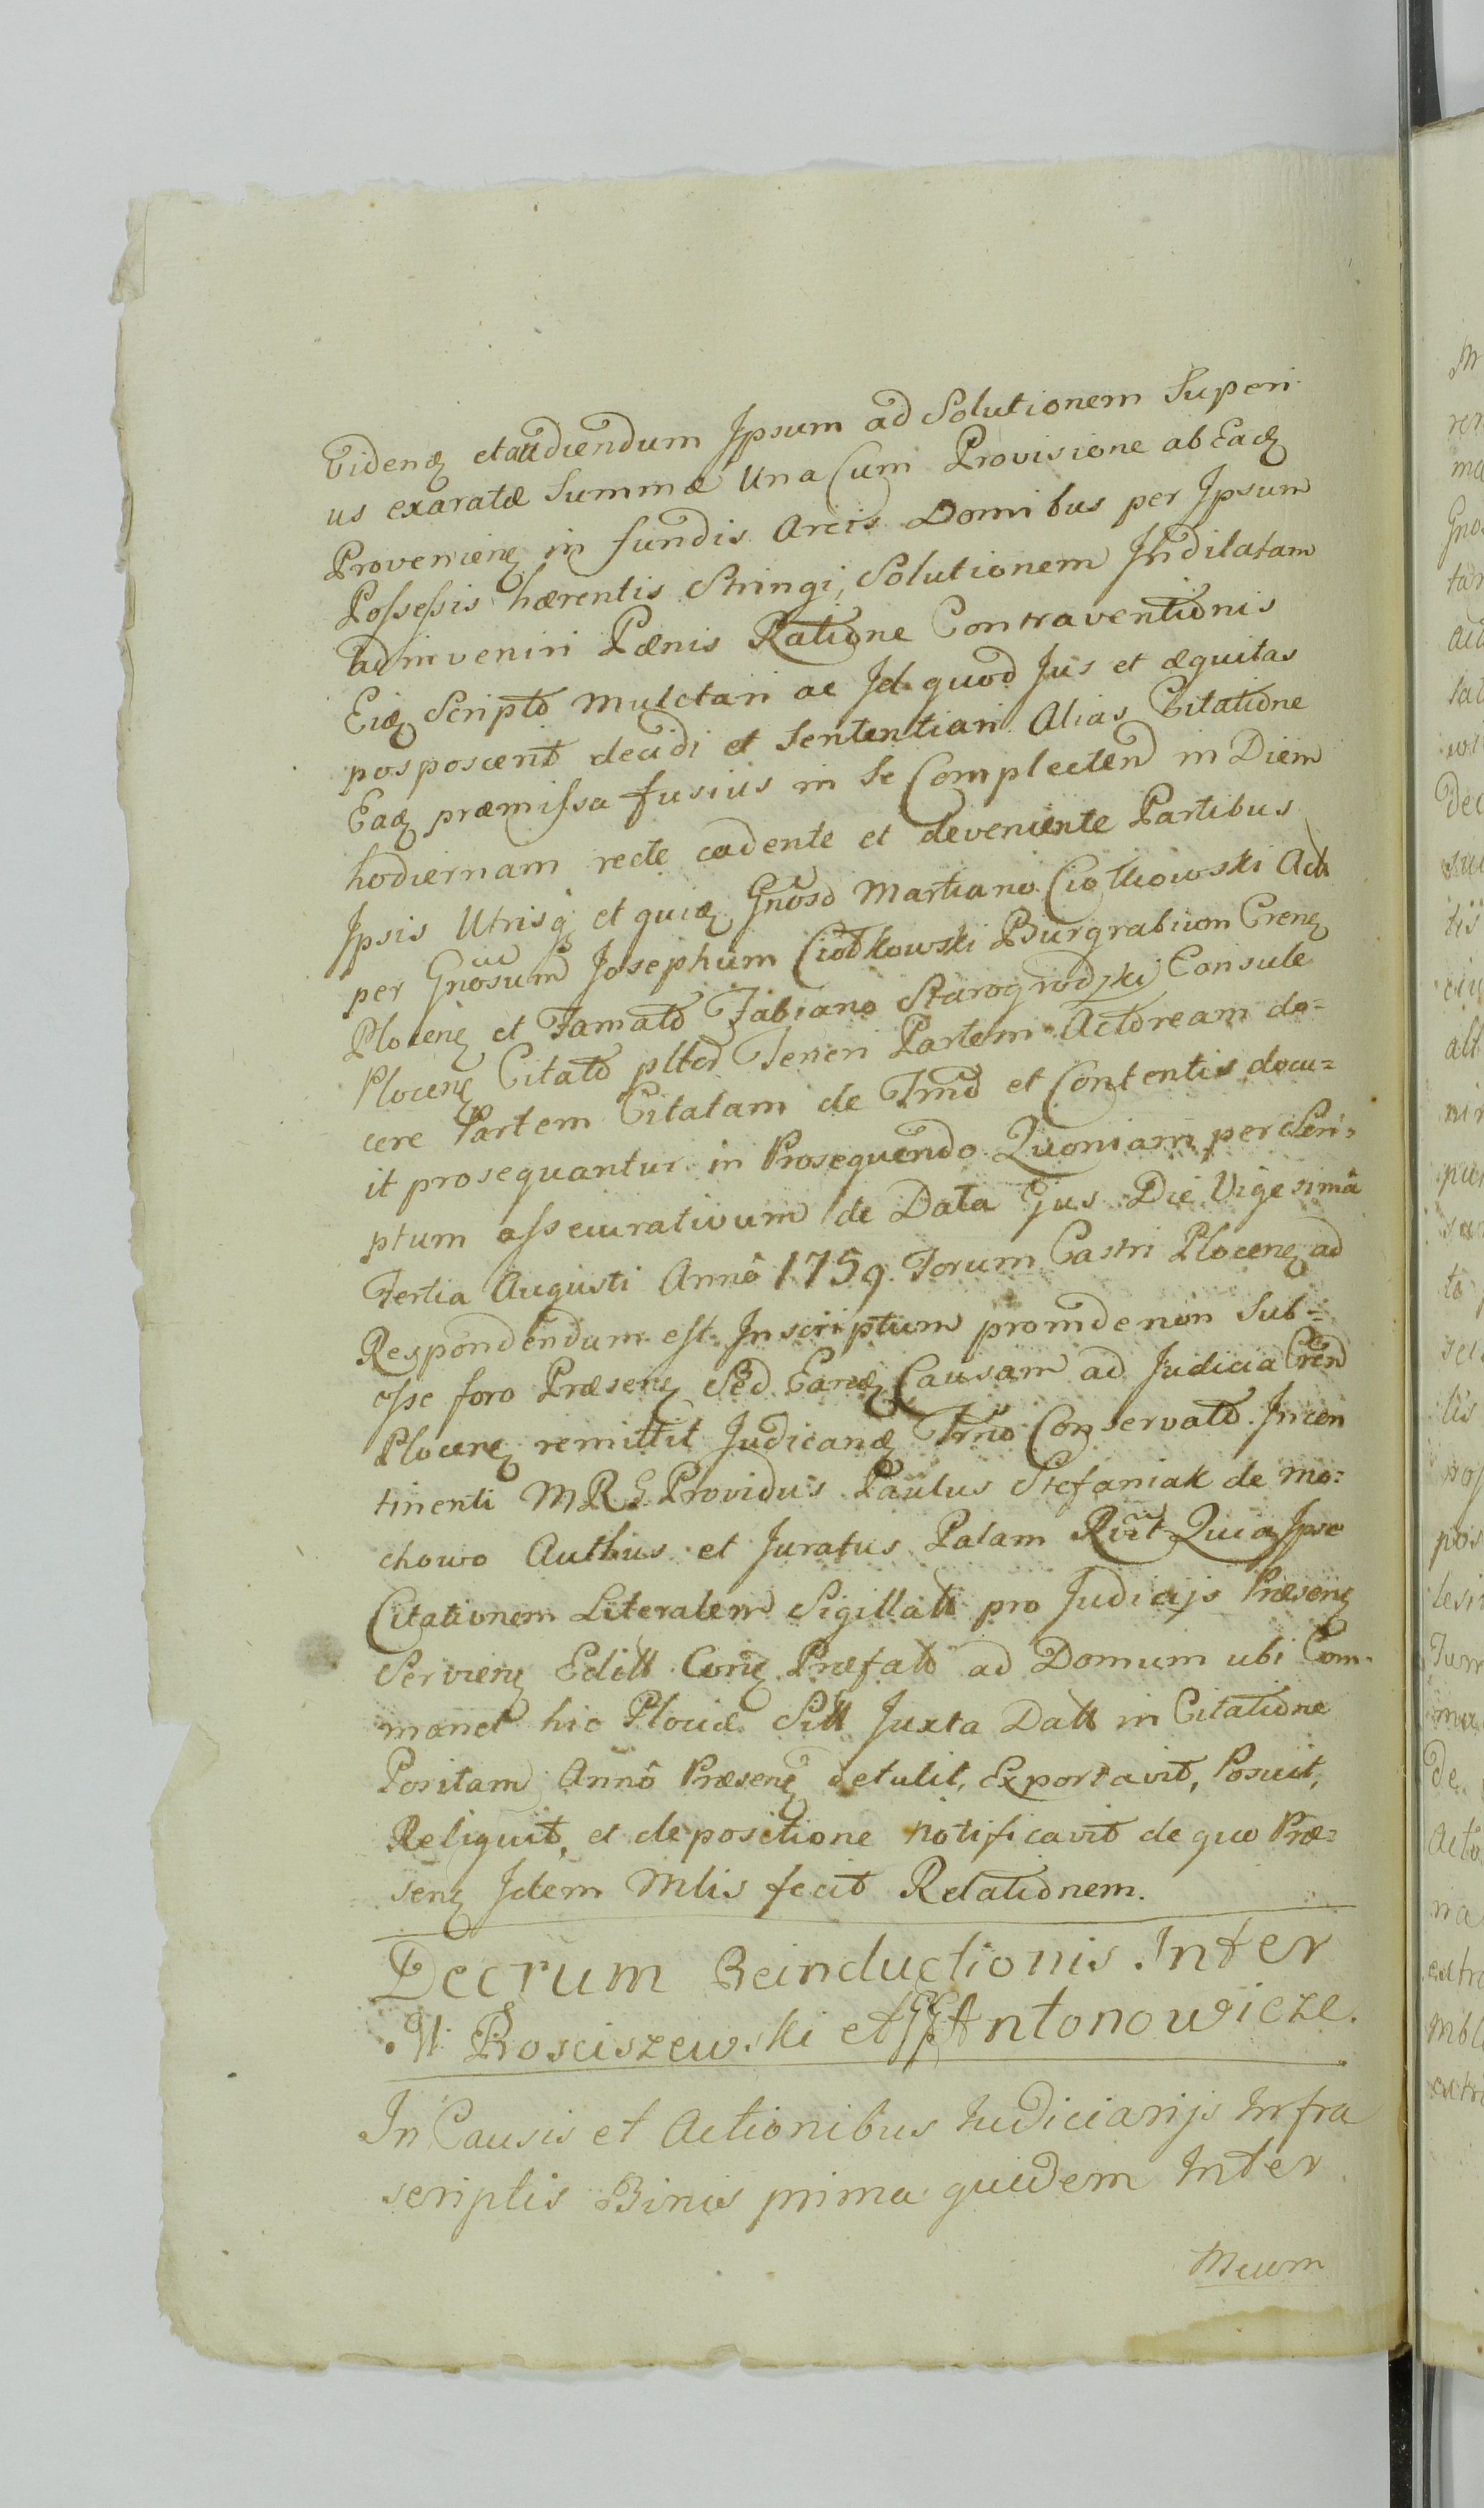 Videnđ et audiendum Ipsum ad Solutionem Superi
us exaratæ Summæ Una Cum Provisione ab Eađ
Provenienđ in fundis Arcis Domibus per Ipsum
Possessis hærentis Stringi, Solutionem Indilatam
adinveniri Pænis Ratione Contraventionis
Eiđ Scripto mulctari ac Id quod Jus et æquitas
posposcerit decidi et Sententiari Alias Citatione
Eađ præmissa fusius in Se Complecten in Diem
hodiernam recte cadente et deveniente Partibus
Ipsis Utrisq et quiđ Gnoso Martiano Ciotkowski Act
per Gnosum Josephum Ciotkowski Burgrabium Crenđ
Plocenđ et Famato Fabiano Starogrodzki Consule
Plocenđ Citato plter Teneri Partem Actoream do=
cere Partem Citatam de Tmo et Contentis docu=
it prosequantur in Prosequendo Quoniam per Scri=
ptum assecurativum de Data Ejus Die Vigesima
Tertia Augusti Anno 1759. Forum Castri Plocenđ ad
Respondendum est Inscriptum proinde non Sub=
esse foro Præsenđ Sed Eanđ Causam ad Judicia Cren
Plocenđ remittit Judicanđ Tmo Conservato. Incon
tinenti MRG Providus Paulus Stefaniak de Mo=
chowo Authus et Juratus Palam Rvit Quia Ipse
Citationem Literalem Sigillatt pro Judicijs Præsenđ
Servienđ Editt Conđ Præfato ad Domum ubi Com=
manet hic Plociæ Sitt Juxta Datt in Citatione
Positam Anno Præsenđ detulit, Exportavit, Posuit,
Reliquit, et depositione notificavit de quo Præ=
senđ Idem Mlis fecit Relationem.
Decrum Reinductionis Inter
W Rosciszewski et GG Antonowicze.
In Causis et Actionibus Judiciarijs Infra
scriptis Binis prima quidem Inter
Mcum